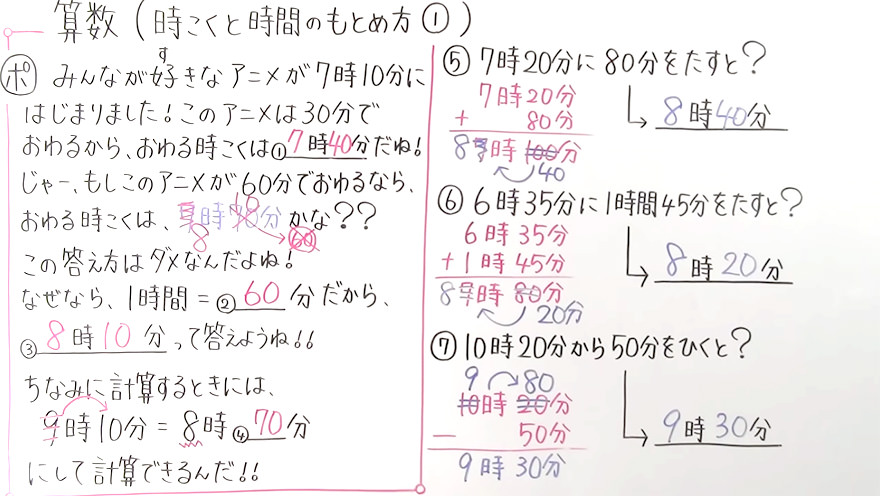 算数(時こくと時間のもとめ方①)
ポ みんなが好きなアニメが7時10分に
す
はじまりました!このアニメは30分で
おわるから、おわる時こくは①7時40分だね!
じゃー、もしこのアニメが60分でおわるなら、
おわる時こくは、7時70分かな??
8 10 60
この答え方はダメなんだよね!
なぜなら、1時間=②60分だから、
③8時10分って答えようね!!
ちなみに計算するときには、
9時10分=8時④70分
にして計算できるんだ!!
⑤7時20分に80分をたすと?
7時20分
+ 80分
8 7時100分
40
8時40分
⑥6時35分に1時間45分をたすと?
6時35分
+1時45分
8 7時80分
20分
8時20分
⑦10時20分から50分をひくと?
9 80
10時20分
- 50分
9時30分
9時30分